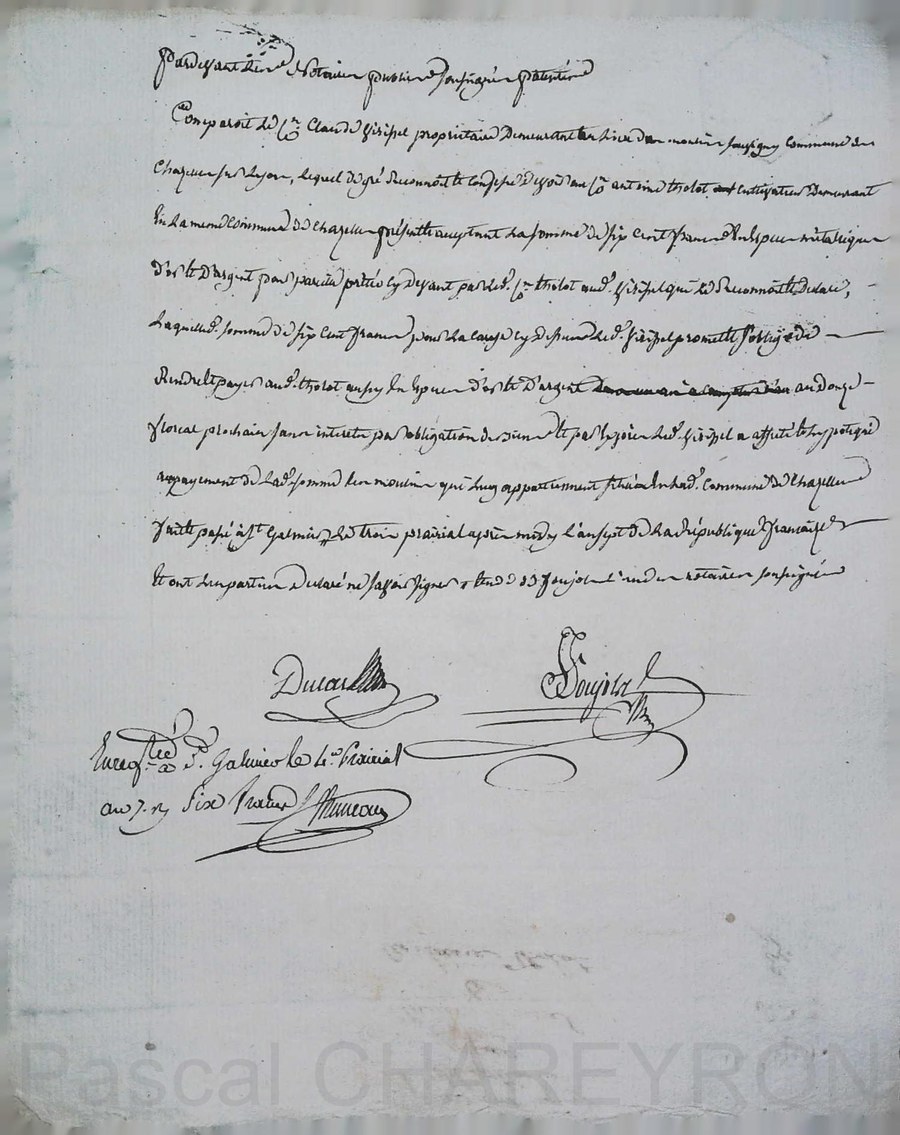 Pardevant les Notaires publics soussignés patentés
Comparoit le Cn Claude Virisel propriétaire demeurant au lieu du moulin commune de
Chazelles sur Lyon, lequel de gré reconnoit et confesse devoir au Cn antoine tholot cultivateur demeurant
En la meme Commune de Chazelles présent et acceptant la somme de six Cent francs En Espece métalique
d'or et D'argent pour pareille prêtée cy devant par led. Cn tholot aud. Virisel qui le Reconnoit et Declare,
Laquelle somme de six Cent francs pour la cause cy dessus led. Virisel promet et s'oblige de
Rendre et payer aud. tholot aussy En Espece d'or et D'argent au Douze
floreal prochain sans interets par obligation de ses biens et par exprès led. Virisel a affecté et hypotéqué
au payement de lad. somme les moulins qui luy appartiennent situés En lad. Commune de Chazelles
fait et passé à St Galmier le trois prairial après midy l'an sept de la république française
Et ont les parties declaré ne savoir signer l'un des notaires soussignés
Ducas
Enregistré à St. Galmier le 4.e Prairial
an 7. Six francs
Pascal CHAREYRON